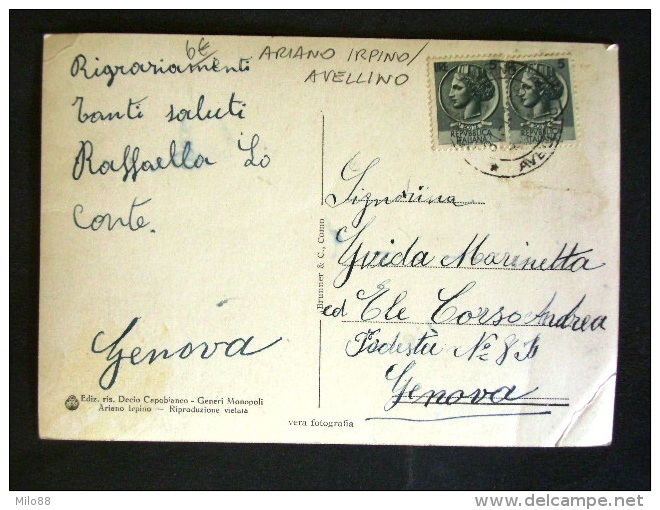 6€
ARIANO IRPINO/
AVELLINO
Rigraziamenti
tanti saluti
Raffaella Lo
Conte.
Genova
Ediz. ris. Decio Capobianco - Generi Monopoli
Ariano Irpino — Riproduzione vietata
Brunner & C., Como
vera fotografia
5
5
REPVBBLICA
ITALIANA
REPVBBLICA
ITALIANA
AVE
Signorina
Guida Marinetta
ed Ele Corso Andrea
Podestà No 8
Genova
Milo88
delcampe.net